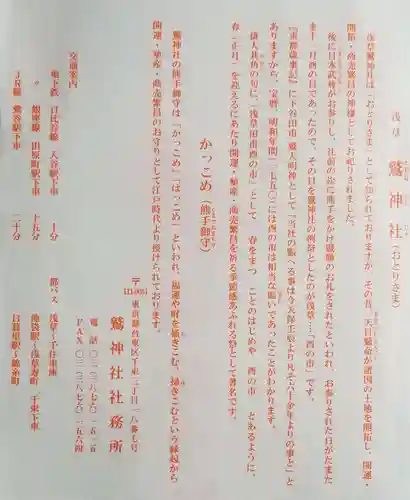 浅草 鷲神社(おとりさま)
浅草鷲神社は「おとりさま」として知られておりますが、その昔、天日鷲命が諸国の土地を開拓し、開運・
開節・商売繁昌の神様としてお祀りされました。
後に日本武尊がお参りし、社前の松に熊手をかけ戦勝のお礼をされたといわれ、お参りされた日がたまた
ま十一月酉の日であったので、その日を鷲神社の例祭としたのが浅草…「酉の市」です。
『東都歳事記』に下谷田甫 鷲大明神として「当社の賑へる事は今天保壬辰より凡そ六十余年よりの事と」と
ありますから、宝暦、明和年間(一七五〇)には酉の市は相当な賑いであったことがわかります。
俳人其角の句に「浅草田甫酉の市」として 春をまつ ことのはじめや 酉の市 とあるように、
春(正月)を迎えるにあたり開運・殖産・商売繁昌を祈る季節感あふれる祭として著名です。
かっこめ(熊手御守)
鷲神社の熊手御守は「かっこめ」「はっこめ」といわれ、福運や財を掻きこむ、掃きこむという縁起から
開運・殖産・商売繁昌のお守りとして江戸時代より授けられております。
〒111-0051 東京都台東区千束三丁目一八番七号
鷲神社社務所
電話 〇三(三八七六)一五一五
FAX 〇三(三八七六)一五六四
交通案内
地下鉄 日比谷線 入谷駅下車 十分
〃 銀座線 田原町駅下車 十五分
JR線 鶯谷駅下車 二十分
都バス 浅草~千住車庫
池袋駅~浅草寿町 千束下車
日暮里駅~錦糸町